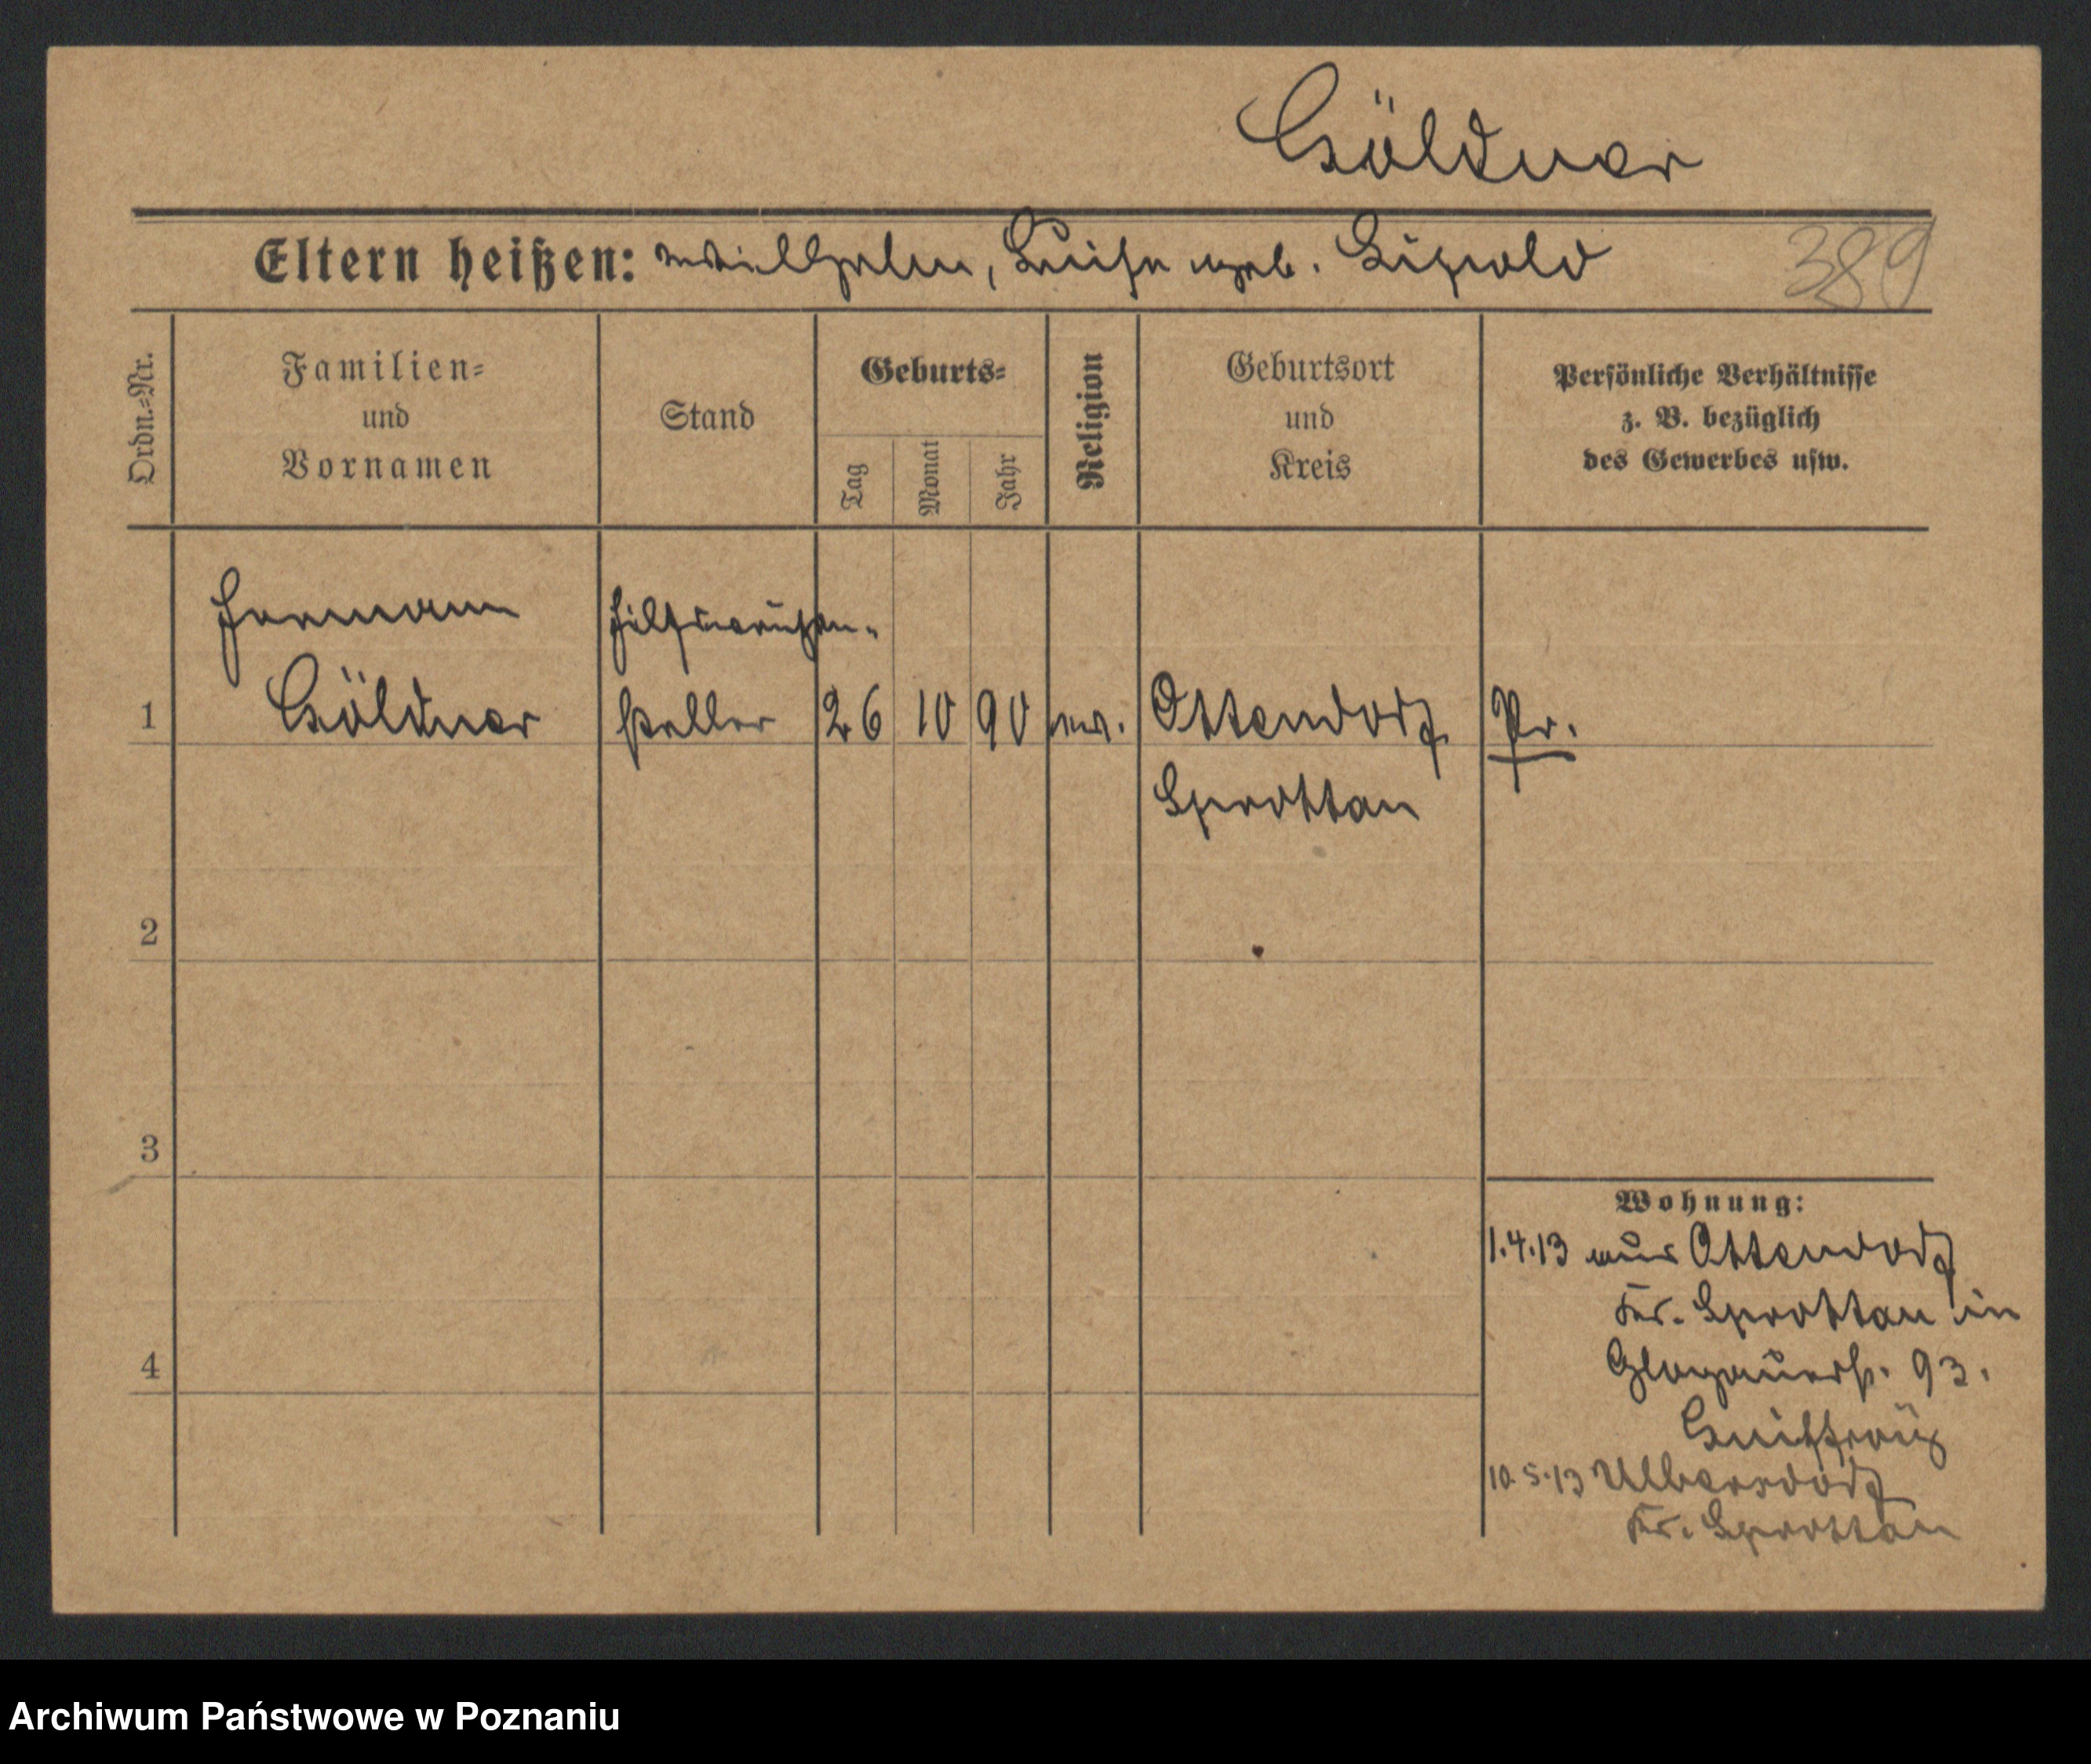 Göldner
Eltern heißen: Wilhelm, Luise geb.
389
Ordn.=Nr.
Familien=
und
Vornamen
Stand
Geburts=
Tag
Monat
Jahr
Religion
Geburtsort
und
Kreis
Persönliche Verhältnisse
z. B. bezüglich
des Gewerbes usw.
Hermann
Hilfsweichen-
1 Göldner steller 26 10 90 ev. Ottendorf Pr.
Sprottau
2
3
Wohnung:
1.4.13 aus Ottendorf
Kr. Sprottau in
4
Glogauerstr. 93.
10.5.13 Ulbersdorf
Kr. Sprottau
Archiwum Państwowe w Poznaniu